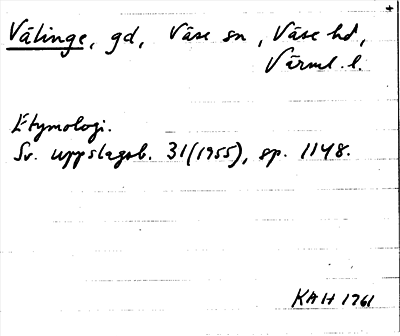 Välinge, gd, Väse sn, Väse hd,
Värml. l.
Etymologi.
Sv. uppslagsb. 31(1955), sp. 1148.
KAH 1961